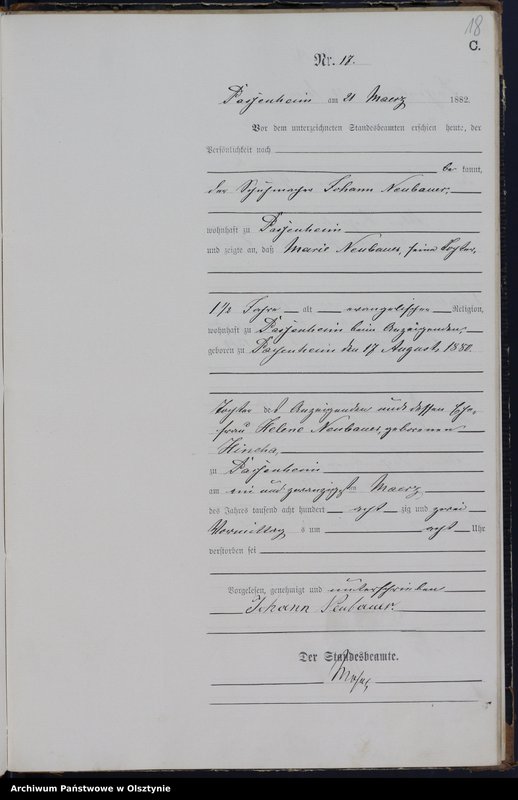 18
C.
Nr. 17.
Passenheim am 21 Maerz 1882.
Vor dem unterzeichneten Standesbeamten erschien heute, der
Persönlichkeit nach
be kannt,
der Schuhmacher Johann Neubauer,
wohnhaft zu Passenheim
und zeigte an, daß Marie Neubauer, seine Tochter,
1 1/2 Jahre alt evangelischer Religion,
wohnhaft zu Passenheim beim Anzeigenden,
geboren zu Passenheim den 17 August 1880.
Tochter des Anzeigenden und dessen Ehe-
frau Helene Neubauer, geborenen
zu Passenheim
am ein und zwanzigsten Maerz
des Jahres tausend acht hundert acht zig und zwei
Vormittag s um acht Uhr
verstorben sei
Vorgelesen, genehmigt und unterschrieben
Johann Neubauer.
Der Standesbeamte.
Archiwum Państwowe w Olsztynie